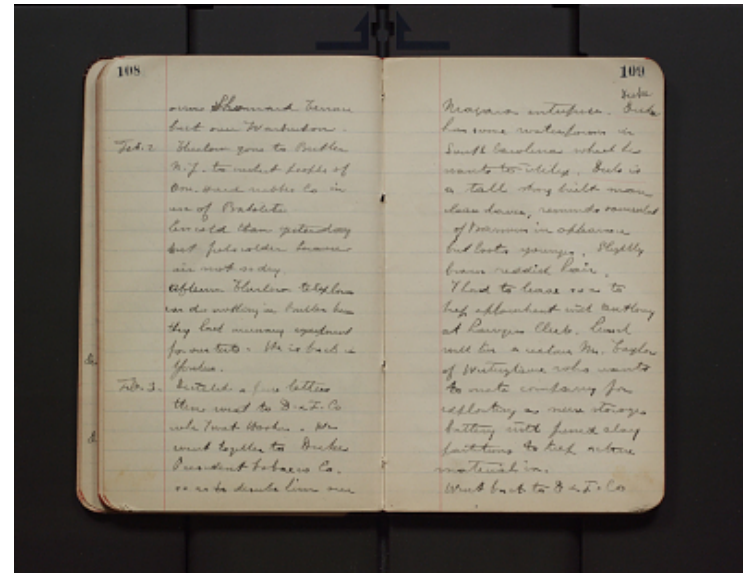 108
over Shonnard Terrace
but over Warburton.
Feb. 2 Thurlow gone to Butler
N.J. to instruct people of
hard rubber Co. in
use of Bakelite
Less cold than yesterday
but feels colder because
air not so dry.
Afternoon Thurlow telephones
can do nothing in Butler because
they lack necessary equipment
for our tests. He is back in
Yonkers.
Feb. 3. Dictated a few letters
then went to D & F. Co
where I met Hooker. We
went together to Duke
President Tobacco Co.
so as to describe him our
109
Duke
Niagara enterprise. Duke
has some waterpowers in
South Carolina which he
wants to utilize. Duke is
a tall strong built man
clean shaven, reminds somewhat
of in appearance
but looks younger. Slightly
brown reddish hair.
I had to leave so as to
keep appointment with
at Lawyers Club. Lunch
with him a certain Mr. Taylor
of who wants
to make company for
exploiting a new storage
battery with fused clay
partitions to keep active
material in.
Went back to D & F. Co